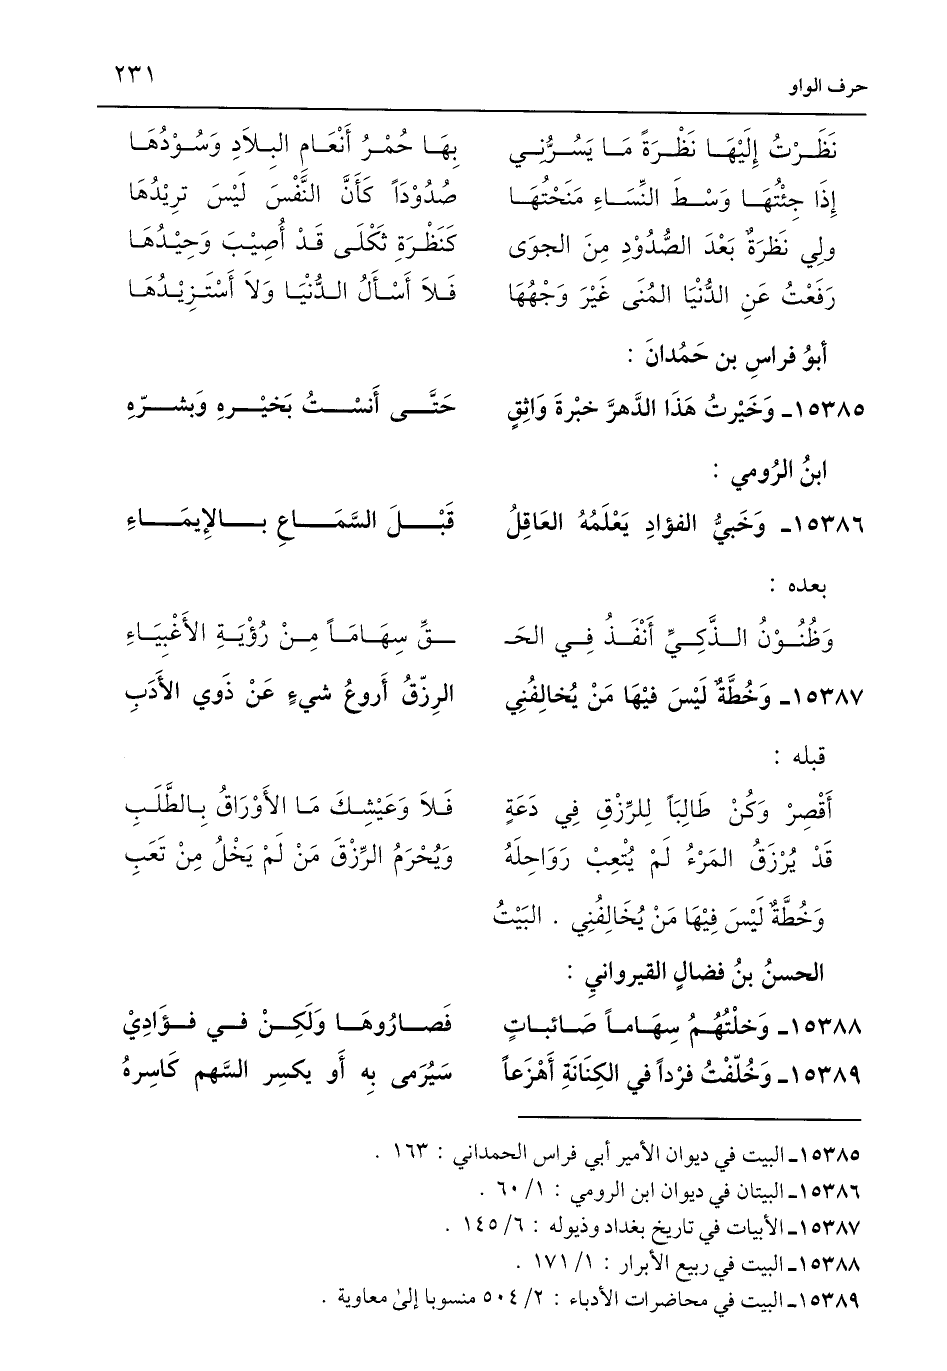 حرف الواو ٢٣١
نَظَرْتُ إِلَيْهَا نَظْرَةً مَا يَسُرُّنِي بِهَا حُمْرُ أَنْعَامِ البِلَادِ وَسُوْدُهَا
إِذَا جِئْتُهَا وَسْطَ النِّسَاءِ مَنَحْتُهَا صُدُوْدَاً كَأَنَّ النَّفْسَ لَيْسَ تريْدُهَا
ولِي نَظرَةٌ بَعْدَ الصُّدُوْدِ مِنَ الجوَى كَنَظْرَةِ ثَكْلَى قَدْ أُصِيْبَ وَحِيْدُهَا
رَفَعْتُ عَنِ الدُّنْيَا المُنَى غَيْرَ وَجْهُهَا فَلاَ أَسْأَلُ الدُّنْيَا وَلاَ أَسْتَزِيْدُهَا
أبوُ فراسِ بن حَمُدانَ :
١٥٣٨٥ـ وَخَيْرتُ هَذَا الدَّهرَّ خبْرةَ وَاثِقٍ حَتَّى أَنسْتُ بَخيْرهِ وَبشرّهِ
ابنُ الرُومي :
١٥٣٨٦ـ وَخَبيُّ الفؤادِ يَعْلَمُهُ العَاقِلُ قَبْلَ السَّمَاعِ بالإيمَاءِ
بعده :
وَظُنُوْنُ الذَّكِيِّ أَنْفَذُ فِي الحَـ ـقِّ سِهَامَاً مِنْ رُؤْيَةِ الأَغْبِيَاءِ
١٥٣٨٧ـ وَخُطَّةٌ لَيْسَ فيْهَا مَنْ يُخالِفُني الرِزّقُ أروعُ شيءٍ عَنْ ذَوي الأدَبِ
قبله :
أَقْصِرْ وَكُنْ طَالِبَاً لِلرِّزْقِ فِي دَعَةٍ فَلاَ وَعَيْشِكَ مَا الأَوْرَاقُ بِالطَّلَبِ
قَدْ يُرْزَقُ المَرْءُ لَمْ يُتْعِبْ رَوَاحِلَهُ وَيُحْرَمُ الرِّزْقَ مَنْ لَمْ يَخْلُ مِنْ تَعَبِ
وَخُطَّةٌ لَيْسَ فِيْهَا مَنْ يُخَالِفُنِي . البَيْتُ
الحسنُ بنُ فضالٍ القيرواني :
١٥٣٨٨ـ وَخلْتُهُمُ سِهَاماً صَائبَاتٍ فَصارُوهَا وَلَكِنْ في فؤَادِيْ
١٥٣٨٩ـ وَخُلّفْتُ فرْداً في الكِنَانَةِ أَهْزَعاً سَيُرَمى بِهِ أَو يكسِر السَّهم كَاسِرهُ
١٥٣٨٥ـ البيت في ديوان الأمير أبي فراس الحمداني : ١٦٣ .
١٥٣٨٦ـ البيتان في ديوان ابن الرومي : ١/ ٦٠ .
١٥٣٨٧ـ الأبيات في تاريخ بغداد وذيوله : ٦/ ١٤٥ .
١٥٣٨٨ـ البيت في ربيع الأبرار : ١/ ١٧١ .
١٥٣٨٩ـ البيت في محاضرات الأدباء : ٢/ ٥٠٤ منسوبا إلىٰ معاوية .